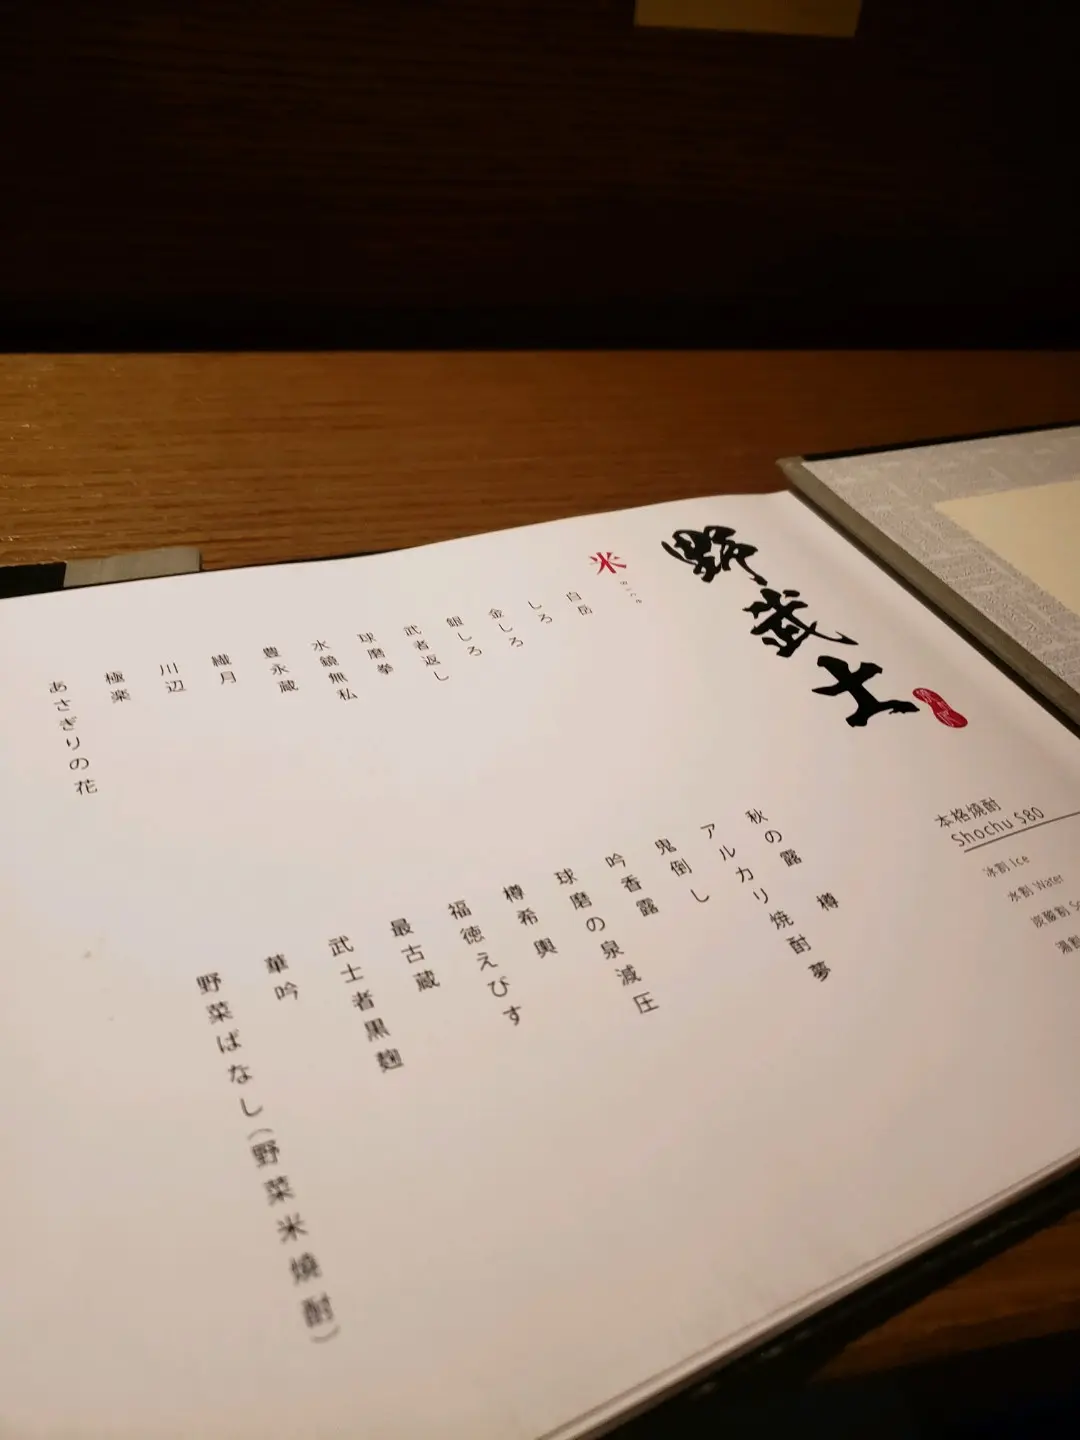 野武士
本格焼酎
Shochu $80
冰割 Ice
水割 Water
炭酸割
湯割
米
白岳
しろ
金しろ
銀しろ
武者返し
球磨拳
水鏡無私
豊永蔵
繊月
川辺
極楽
あさぎりの花
秋の露 樽
アルカリ焼酎夢
鬼倒し
吟香露
球磨の泉減圧
樽希輿
福徳えびす
最古蔵
武士者黒麹
華吟
野菜ばなし(野菜米焼酎)